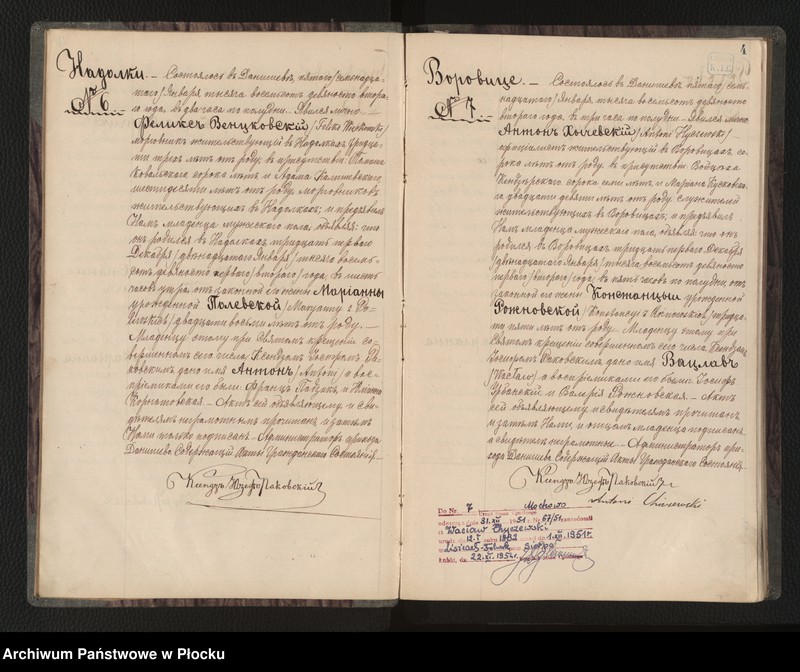 Надолки. — Состоялось въ Данишевѣ, пятаго/семнадца-
№ 6 таго/Января тысяча восемьсотъ девяносто второ-
го года, въ два часа по полудни. — Явился лично
Феликсъ Венцковскій /Feliks Więckowski/
морговникъ жительствующій въ Надолкахъ тридца-
ти трехъ лѣтъ отъ роду, въ присутствіи
Ковальскаго сорока лѣтъ и Адама
шестидесяти лѣтъ отъ роду, морговниковъ
жительствующихъ въ Надолкахъ; и предъявилъ
Намъ младенца мужескаго пола, объявляя: что
онъ родился въ Надолкахъ тридцать перваго
Декабря /двѣнадцатаго Января/ тысяча восемь-
сотъ девяносто перваго/втораго/ года, въ шесть
часовъ утра, отъ законной его жены Маріанны
урожденной Полевской /Maryanny z
двадцати восьми лѣтъ отъ роду. —
Младенцу этому при Святомъ крещеніи со-
вершенномъ его числа Ксендзомъ Іосифомъ Па-
ковскимъ дано имя Антонъ /Antoni/ а вос-
пріемниками его были: Францъ и
— Актъ сей объявляющему и сви-
дѣтелямъ неграмотнымъ прочитанъ, и затѣмъ
Нами только подписанъ. — Администраторъ прихода
Данишево Содержащій Акты Гражданскаго Состоянія. —
Ксендзъ Юзефъ Паковскій
4
Воровице. — Состоялось въ Данишевѣ пятаго/сем-
№ 7 надцатаго/ Января тысяча восемьсотъ девяносто
втораго года, въ три часа по полудни. — Явился лично
Антонъ Хычевскій /Antoni Hyczewski/ —
жительствующій въ Воровицахъ, со-
рока лѣтъ отъ роду, въ присутствіи Войцѣха
сорока семи лѣтъ, и Маріана
двадцати девяти лѣтъ отъ роду, служителей
жительствующихъ въ Воровицахъ; и предъявилъ
Намъ младенца мужескаго пола, объявляя: что онъ
родился въ Воровицахъ тридцать перваго Декабря
/двѣнадцатаго Января/ тысяча восемьсотъ девяносто
перваго/втораго/ года, въ пять часовъ по полудни, отъ
законной его жены Констанцыи урожденной
Рожновской /Konstancyi z тридца-
ти пяти лѣтъ отъ роду. — Младенцу этому при
Святомъ крещеніи совершенномъ его числа Ксендзомъ
Іосифомъ Паковскимъ, дано имя Вацлавъ
/Wacław/ а воспріемниками его были: Іосифъ
Урбанскій и Валерія Рожновская. — Актъ
сей объявляющему и свидѣтелямъ прочитанъ,
и затѣмъ Нами, и отцомъ младенца подписанъ,
а свидѣтели неграмотны. — Администраторъ при-
хода Данишево Содержащій Акты Гражданскаго Состоянія. —
Ксендзъ Юзефъ Паковскій
Antoni Chiczewski
Do Nr. 7 Mochowo
31.XII 1951 r. Nr 67/51
Wacław Chyczewski
12.I roku 1892 1.XII.1951r.
Sierpc
dn. 22.XI.1954r.
Archiwum Państwowe w Płocku